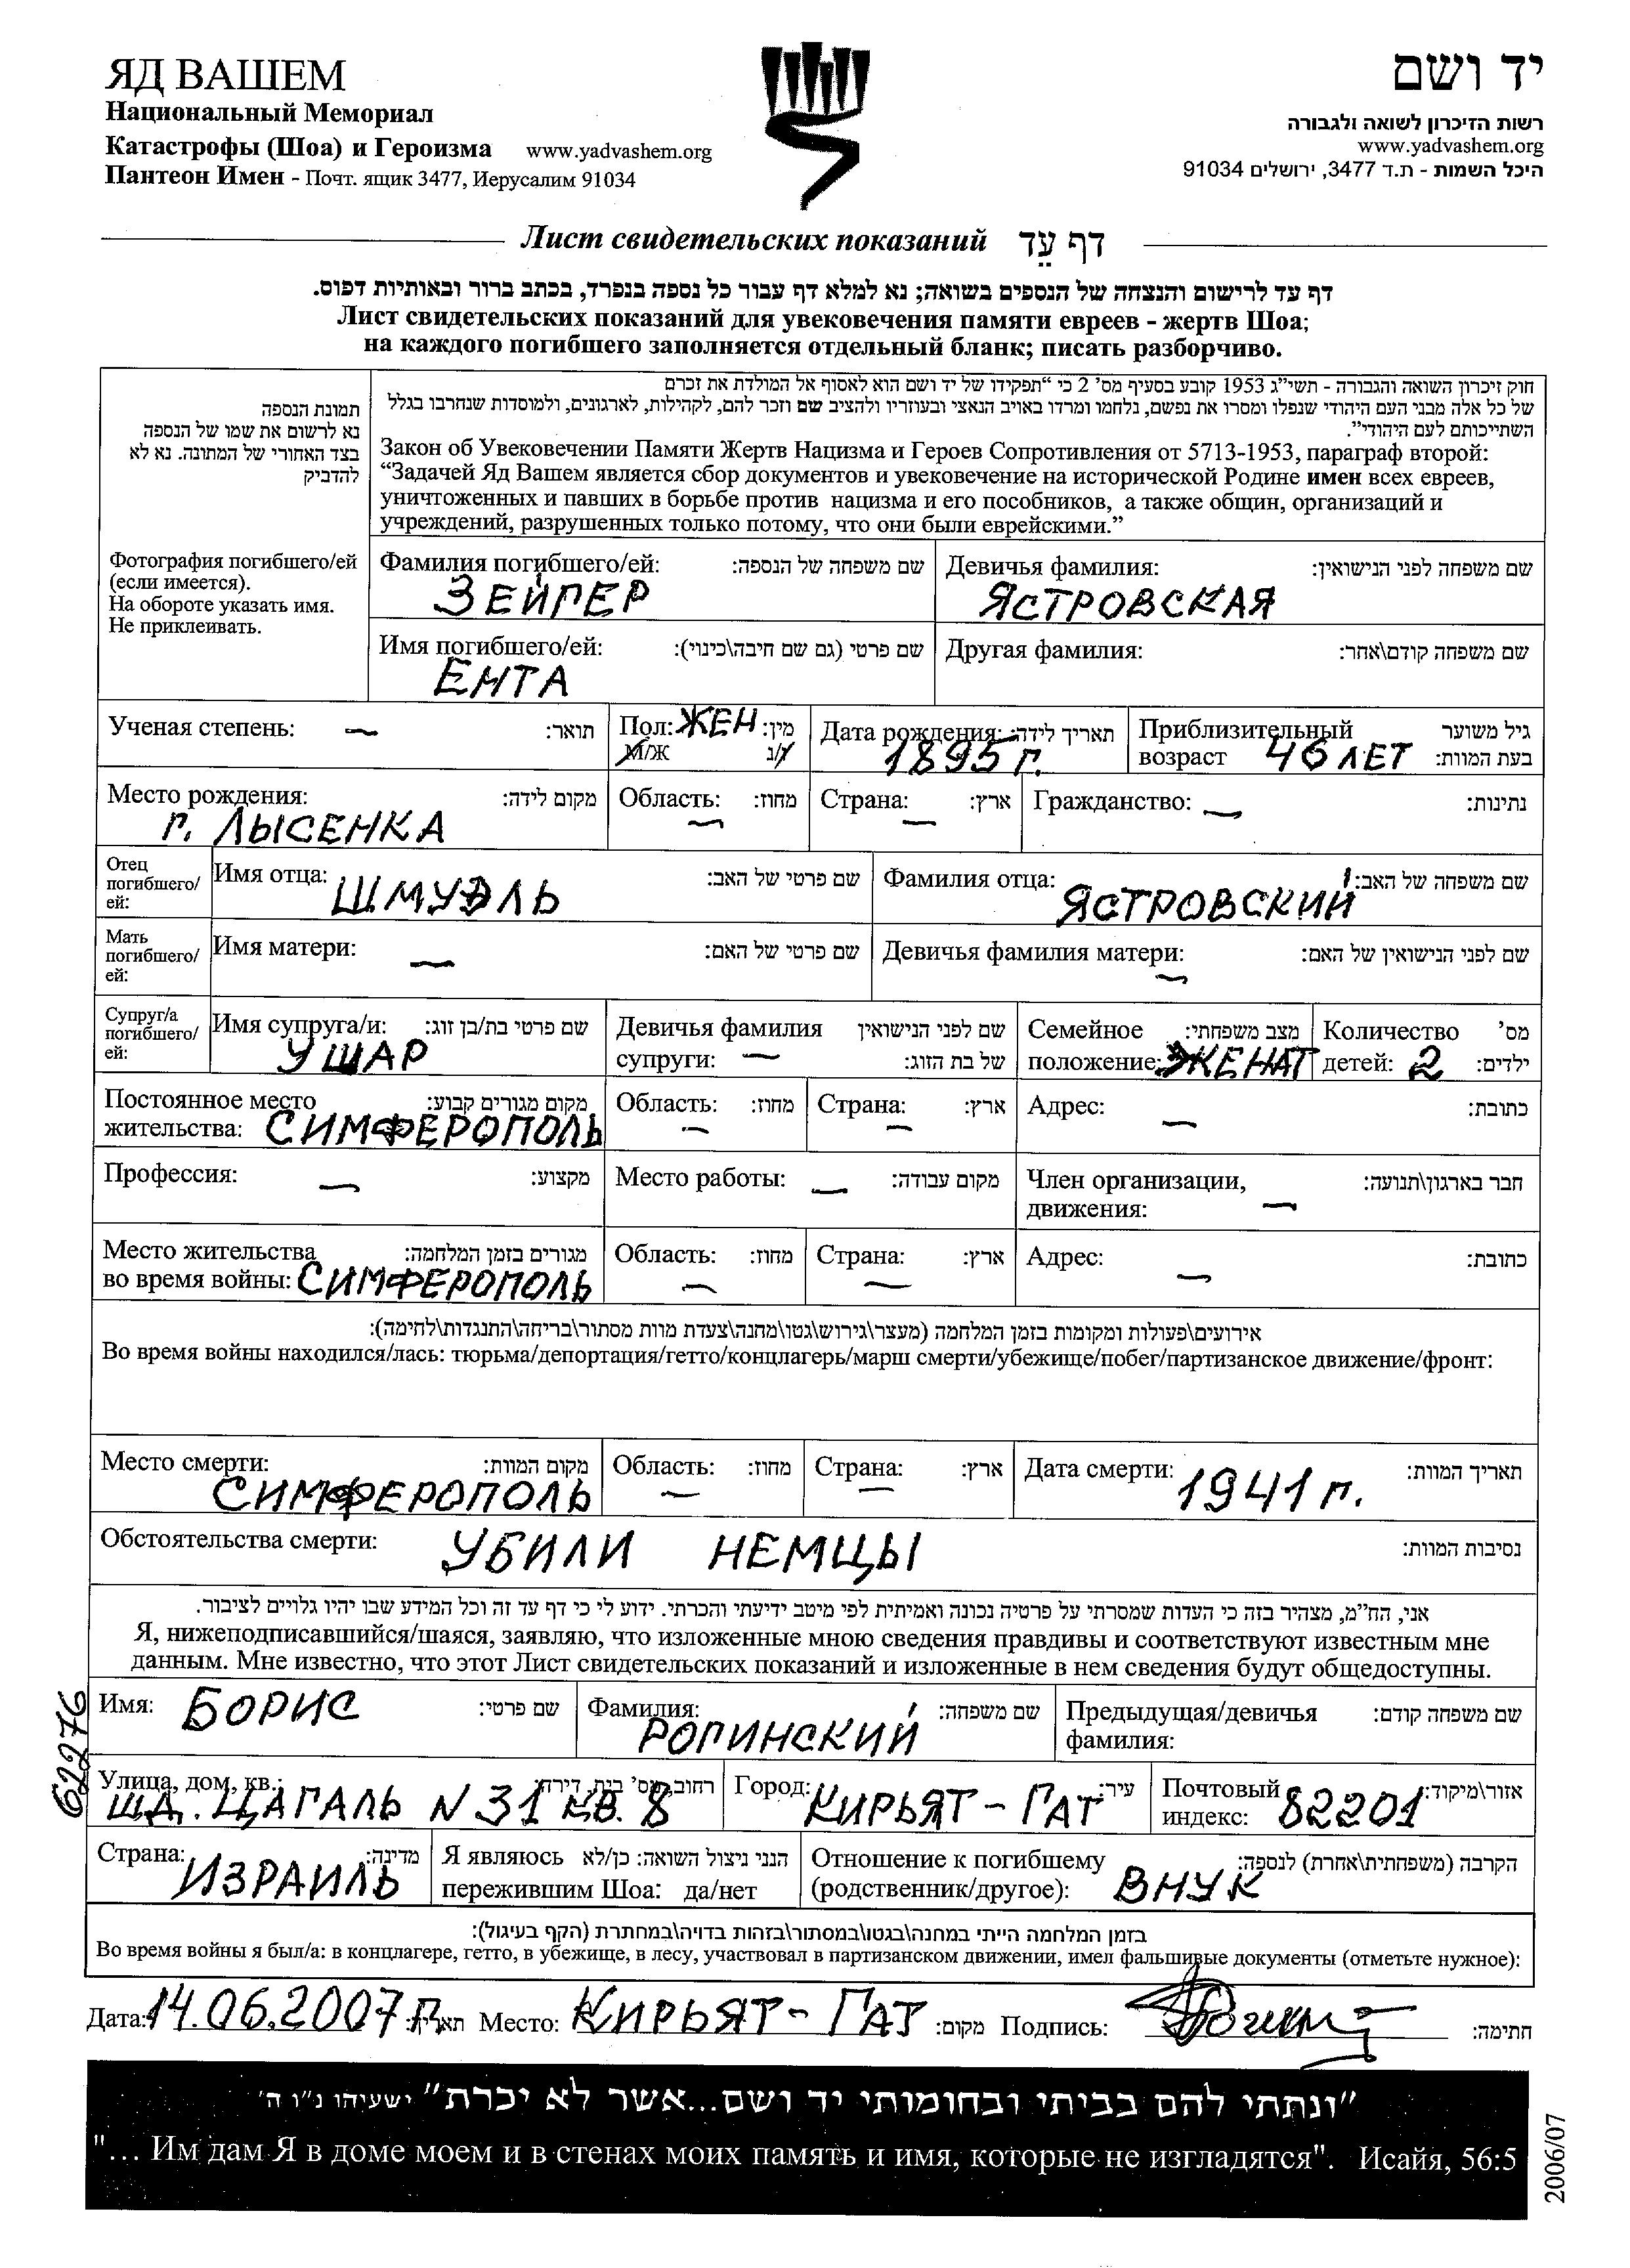 ЯД ВАШЕМ
Национальный Мемориал
Катастрофы (Шоа) и Героизма www.yadvashem.org
Пантеон Имен - Почт. ящик 3477, Иерусалим 91034
יד ושם
רשות הזיכרון לשואה ולגבורה
www.yadvashem.org
היכל השמות - ת.ד 3477, ירושלים 91034
Лист свидетельских показаний דף עֵד
דף עד לרישום והנצחה של הנספים בשואה; נא למלא דף עבור כל נספה בנפרד, בכתב ברור ובאותיות דפוס.
Лист свидетельских показаний для увековечения памяти евреев - жертв Шоа;
на каждого погибшего заполняется отдельный бланк; писать разборчиво.
תמונת הנספה
נא לרשום את שמו של הנספה
בצד האחורי של המתונה. נא לא
להדביק
Фотография погибшего/ей
(если имеется).
На обороте указать имя.
Не приклеивать.
חוק זיכרון השואה והגבורה - תשי"ג 1953 קובע בסעיף מס' 2 כי "תפקידו של יד ושם הוא לאסוף אל המולדת את זכרם
של כל אלה מבני העם היהודי שנפלו ומסרו את נפשם, נלחמו ומרדו באויב הנאצי ובעוזריו ולהציב שם וזכר להם, לקהילות, לארגונים, ולמוסדות שנחרבו בגלל
השתייכותם לעם היהודי".
Закон об Увековечении Памяти Жертв Нацизма и Героев Сопротивления от 5713-1953, параграф второй:
"Задачей Яд Вашем является сбор документов и увековечение на исторической Родине имен всех евреев,
уничтоженных и павших в борьбе против нацизма и его пособников, а также общин, организаций и
учреждений, разрушенных только потому, что они были еврейскими."
Фамилия погибшего/ей: שם משפחה של הנספה:
ЗЕЙГЕР
Девичья фамилия: שם משפחה לפני הנישואין:
ЯСТРОВСКАЯ
Имя погибшего/ей: שם פרטי (גם שם חיבה\כינוי):
ЕНТА
Другая фамилия: שם משפחה קודם\אחר:
Ученая степень: — תואר:
Пол: ЖЕН מין:
М/Ж ז/נ
Дата рождения: תאריך לידה:
1895 г.
Приблизительный גיל משוער
возраст 46 ЛЕТ בעת המוות:
Место рождения: מקום לידה:
г. ЛЫСЕНКА
Область: — מחוז:
Страна: — ארץ:
Гражданство: — נתינות:
Отец
погибшего/
ей:
Имя отца: ШМУЭЛЬ שם פרטי של האב:
Фамилия отца: ЯСТРОВСКИЙ שם משפחה של האב:
Мать
погибшего/
ей:
Имя матери: — שם פרטי של האם:
Девичья фамилия матери: — שם לפני הנישואין של האם:
Супруг/а
погибшего/
ей:
Имя супруга/и: שם פרטי בת/בן זוג:
УШАР
Девичья фамилия שם לפני הנישואין
супруги: — של בת הזוג:
Семейное מצב משפחתי:
положение: ЖЕНАТ
Количество מס'
детей: 2 ילדים:
Постоянное место מקום מגורים קבוע:
жительства: СИМФЕРОПОЛЬ
Область: — מחוז:
Страна: — ארץ:
Адрес: — כתובת:
Профессия: — מקצוע:
Место работы: — מקום עבודה:
Член организации, חבר בארגון\תנועה:
движения: —
Место жительства מגורים בזמן המלחמה:
во время войны: СИМФЕРОПОЛЬ
Область: — מחוז:
Страна: — ארץ:
Адрес: — כתובת:
אירועים\פעולות ומקומות בזמן המלחמה (מעצר\גירוש\גטו\מחנה\צעדת מוות מסתור\בריחה\התנגדות\לחימה):
Во время войны находился/лась: тюрьма/депортация/гетто/концлагерь/марш смерти/убежище/побег/партизанское движение/фронт:
Место смерти: מקום המוות:
СИМФЕРОПОЛЬ
Область: — מחוז:
Страна: — ארץ:
Дата смерти: 1941 г. תאריך המוות:
Обстоятельства смерти: УБИЛИ НЕМЦЫ נסיבות המוות:
אני, הח"מ, מצהיר בזה כי העדות שמסרתי על פרטיה נכונה ואמיתית לפי מיטב ידיעתי והכרתי. ידוע לי כי דף עד זה וכל המידע שבו יהיו גלויים לציבור.
Я, нижеподписавшийся/шаяся, заявляю, что изложенные мною сведения правдивы и соответствуют известным мне
данным. Мне известно, что этот Лист свидетельских показаний и изложенные в нем сведения будут общедоступны.
62276
Имя: БОРИС שם פרטי:
Фамилия: שם משפחה:
РОГИНСКИЙ
Предыдущая/девичья שם משפחה קודם:
фамилия:
Улица, дом, кв.: רחוב, מס' בית, דירה:
ШД. ЦАГАЛЬ N 31 КВ. 8
Город: КИРЬЯТ-ГАТ עיר:
Почтовый אזור\מיקוד:
индекс: 82201
Страна: ИЗРАИЛЬ מדינה:
Я являюсь הנני ניצול השואה: כן/לא
пережившим Шоа: да/нет
Отношение к погибшему הקרבה (משפחתית\אחרת) לנספה:
(родственник/другое): ВНУК
בזמן המלחמה הייתי במחנה\בגטו\במסתור\בזהות בדויה\במחתרת (הקף בעיגול):
Во время войны я был/а: в концлагере, гетто, в убежище, в лесу, участвовал в партизанском движении, имел фальшивые документы (отметьте нужное):
Дата: 14.06.2007 г. תאריך: Место: КИРЬЯТ-ГАТ מקום: Подпись: חתימה:
"ונתתי להם בביתי ובחומותי יד ושם...אשר לא יכרת" ישעיהו נ"ו ה'
"... Им дам Я в доме моем и в стенах моих память и имя, которые не изгладятся". Исайя, 56:5
2006/07